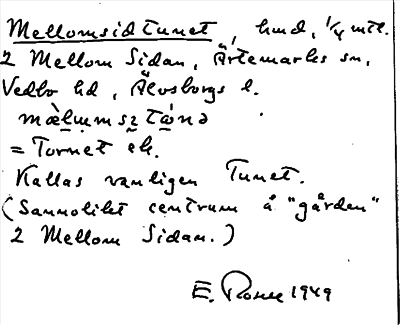 Mellomsidtunet, hmd, 1/4 mtl.
2 Mellom Sidan, Ärtemarks sn,
Vedbo hd, Älvsborgs l.
= Tornet ek.
Kallas vanligen Tunet.
(Sannolikt centrum å "gården"
2 Mellom Sidan.)
E. Rosell 1949